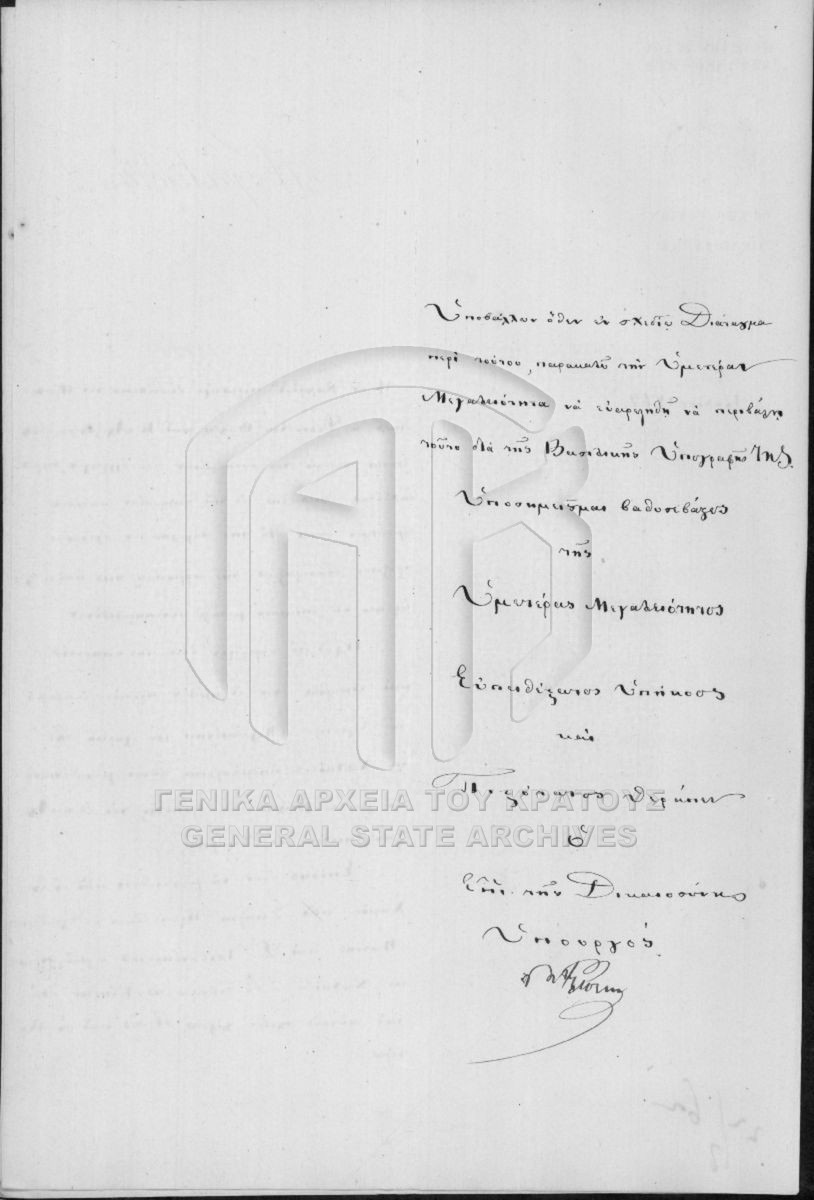 Ὑποβάλλων ὅθεν ἐν σχεδίῳ Διάταγμα
περὶ τούτου, παρακαλῶ τὴν Ὑμετέραν
Μεγαλειότητα νὰ εὐαρεστηθῇ νὰ περιβάλῃ
τοῦτο διὰ τῆς Βασιλικῆς Ὑπογραφῆς Της.
Ὑποσημειοῦμαι βαθυσεβάστως
τῆς
Ὑμετέρας Μεγαλειότητος
Εὐπειθέστατος ὑπήκοος
καὶ
Πιστότατος θεράπων
ΓΕΝΙΚΑ ΑΡΧΕΙΑ ΤΟΥ ΚΡΑΤΟΥΣ
GENERAL STATE ARCHIVES
Ὁ
Ἐπὶ τῆς Δικαιοσύνης
Ὑπουργός